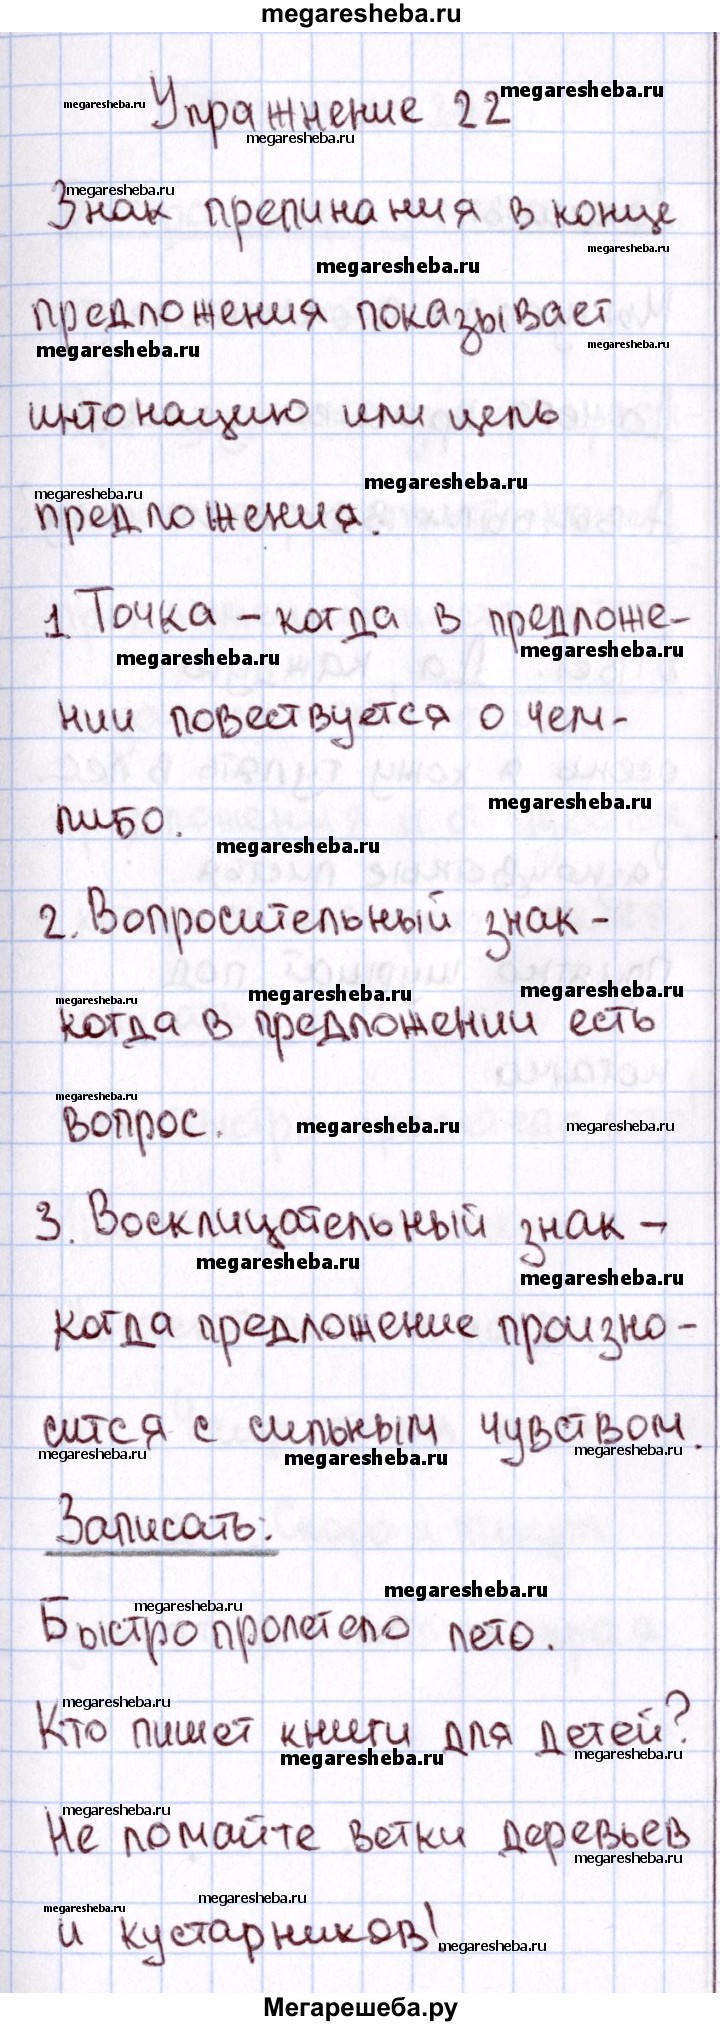 megaresheba.ru
Упражнение 22
Знак препинания в конце
предложения показывает
интонацию или цель
предложения.
1. Точка – когда в предложе-
нии повествуется о чем-
либо.
2. Вопросительный знак -
когда в предложении есть
вопрос.
3. Восклицательный знак –
когда предложение произно-
сится с сильным чувством.
Записать:
Быстро пролетело лето.
Кто пишет книги для детей?
Не ломайте ветки деревьев
и кустарников!
Мегарешеба.ру